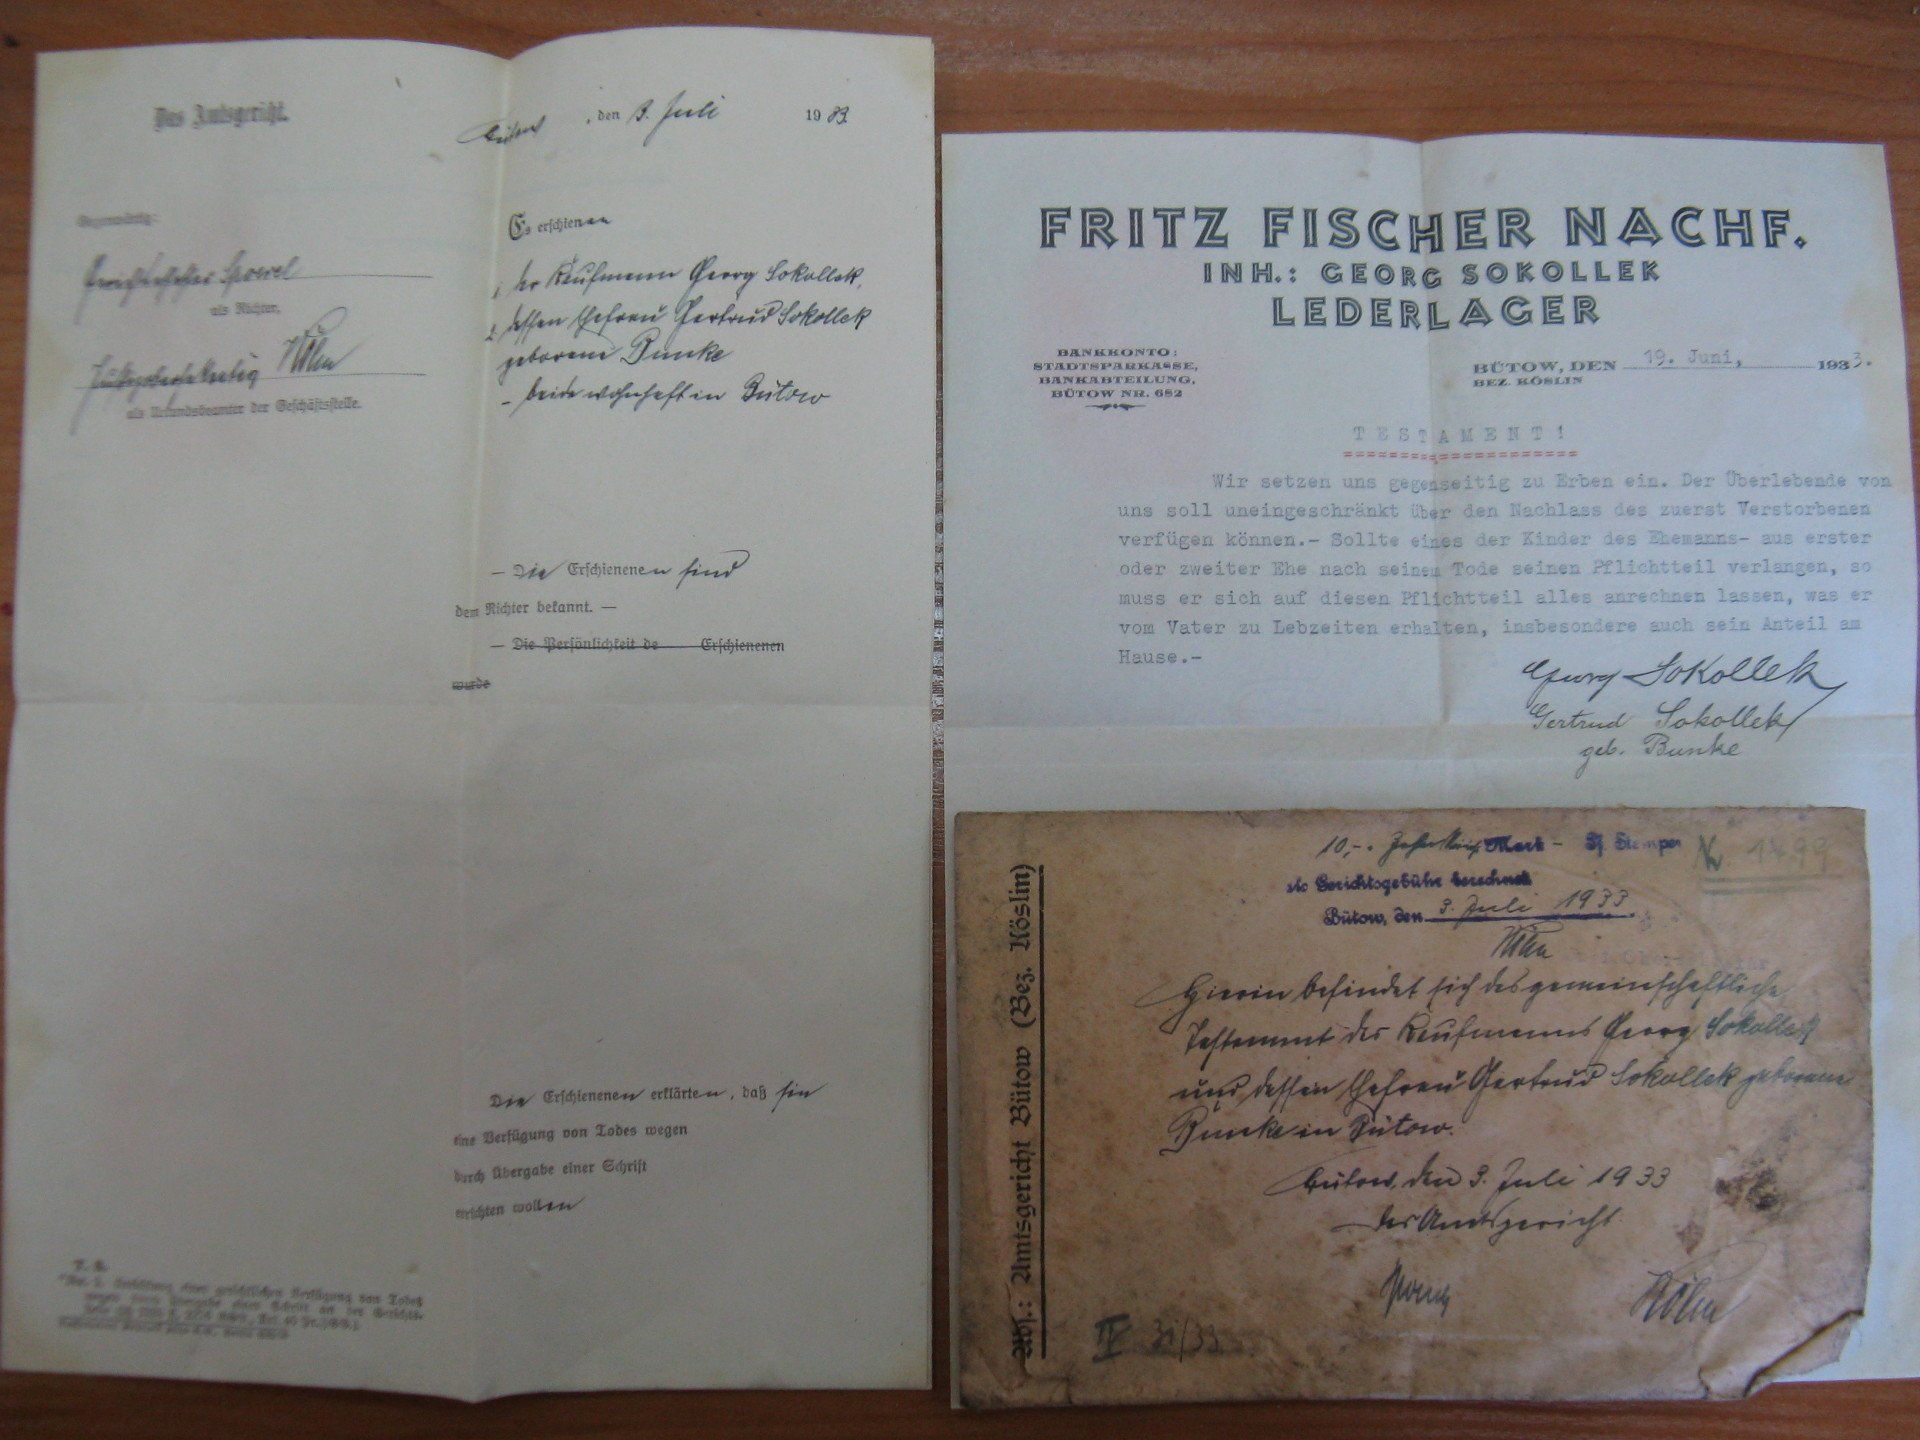 Das Amtsgericht.
Bütow, den 3. Juli 1933.
Gegenwärtig:
als Richter,
Wölm
als Urkundsbeamter der Geschäftsstelle.
Es erschienen
1, der Kaufmann Georg Sokollek,
2, dessen Ehefrau Gertrud Sokollek
geborene Bunke
- beide wohnhaft in Bütow
— Die Erschienenen sind
dem Richter bekannt. —
— Die Persönlichkeit de Erschienenen
wurde
Die Erschienenen erklärten, daß sie
eine Verfügung von Todes wegen
durch Übergabe einer Schrift
errichten wollen
FRITZ FISCHER NACHF.
INH.: GEORG SOKOLLEK
LEDERLAGER
BANKKONTO:
STADTSPARKASSE,
BANKABTEILUNG,
BÜTOW NR. 682
BÜTOW, DEN 19. Juni, 1933.
BEZ. KÖSLIN
TESTAMENT!
Wir setzen uns gegenseitig zu Erben ein. Der Überlebende von
uns soll uneingeschränkt über den Nachlass des zuerst Verstorbenen
verfügen können.- Sollte eines der Kinder des Ehemanns- aus erster
oder zweiter Ehe nach seinem Tode seinen Pflichtteil verlangen, so
muss er sich auf diesen Pflichtteil alles anrechnen lassen, was er
vom Vater zu Lebzeiten erhalten, insbesondere auch sein Anteil am
Hause.-
Georg Sokollek
Gertrud Sokollek
geb. Bunke
Abs.: Amtsgericht Bütow (Bez. Köslin)
10,-. Mark - Pf. Stempel
als Gerichtsgebühr berechnet
Bütow, den 3. Juli 1933.
Wölm
1499
Hierin befindet sich das gemeinschaftliche
Testament des Kaufmanns Georg Sokollek
und dessen Ehefrau Gertrud Sokollek geborene
Bunke in Bütow.
Bütow, den 3. Juli 1933
das Amtsgericht.
Wölm
IV 31/33